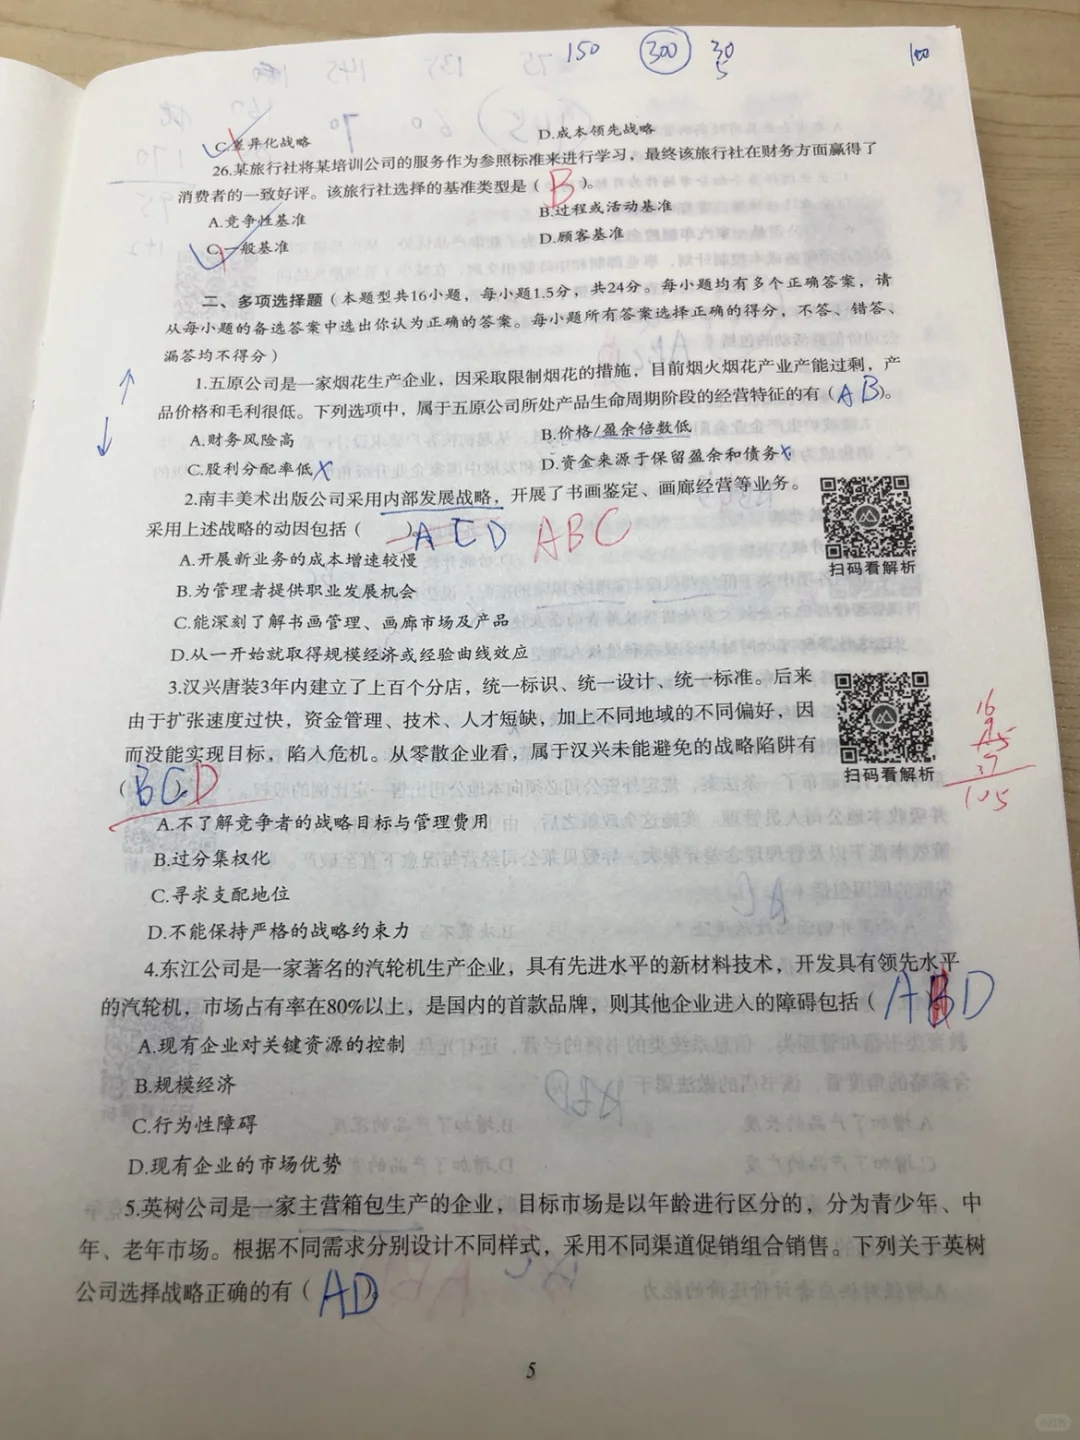 150 300 30 100
5
C.差异化战略 D.成本领先战略
26.某旅行社将某培训公司的服务作为参照标准来进行学习，最终该旅行社在财务方面赢得了
消费者的一致好评。该旅行社选择的基准类型是（B）。
A.竞争性基准 B.过程或活动基准
C.一般基准 D.顾客基准
二、多项选择题（本题型共16小题，每小题1.5分，共24分。每小题均有多个正确答案，请
从每小题的备选答案中选出你认为正确的答案。每小题所有答案选择正确的得分，不答、错答、
漏答均不得分）
1.五原公司是一家烟花生产企业，因采取限制烟花的措施，目前烟火烟花产业产能过剩，产
品价格和毛利很低。下列选项中，属于五原公司所处产品生命周期阶段的经营特征的有（AB）。
A.财务风险高 B.价格/盈余倍数低
C.股利分配率低 x D.资金来源于保留盈余和债务 x
2.南丰美术出版公司采用内部发展战略，开展了书画鉴定、画廊经营等业务。
采用上述战略的动因包括（ ）ACD ABC
A.开展新业务的成本增速较慢
扫码看解析
B.为管理者提供职业发展机会
C.能深刻了解书画管理、画廊市场及产品
D.从一开始就取得规模经济或经验曲线效应
3.汉兴唐装3年内建立了上百个分店，统一标识、统一设计、统一标准。后来
由于扩张速度过快，资金管理、技术、人才短缺，加上不同地域的不同偏好，因
而没能实现目标，陷入危机。从零散企业看，属于汉兴未能避免的战略陷阱有
扫码看解析
（BCD
16
37
105
A.不了解竞争者的战略目标与管理费用
B.过分集权化
C.寻求支配地位
D.不能保持严格的战略约束力
4.东江公司是一家著名的汽轮机生产企业，具有先进水平的新材料技术，开发具有领先水平
的汽轮机，市场占有率在80%以上，是国内的首款品牌，则其他企业进入的障碍包括（ABD
A.现有企业对关键资源的控制
B.规模经济
C.行为性障碍
D.现有企业的市场优势
5.英树公司是一家主营箱包生产的企业，目标市场是以年龄进行区分的，分为青少年、中
年、老年市场。根据不同需求分别设计不同样式，采用不同渠道促销组合销售。下列关于英树
公司选择战略正确的有（AD）
5